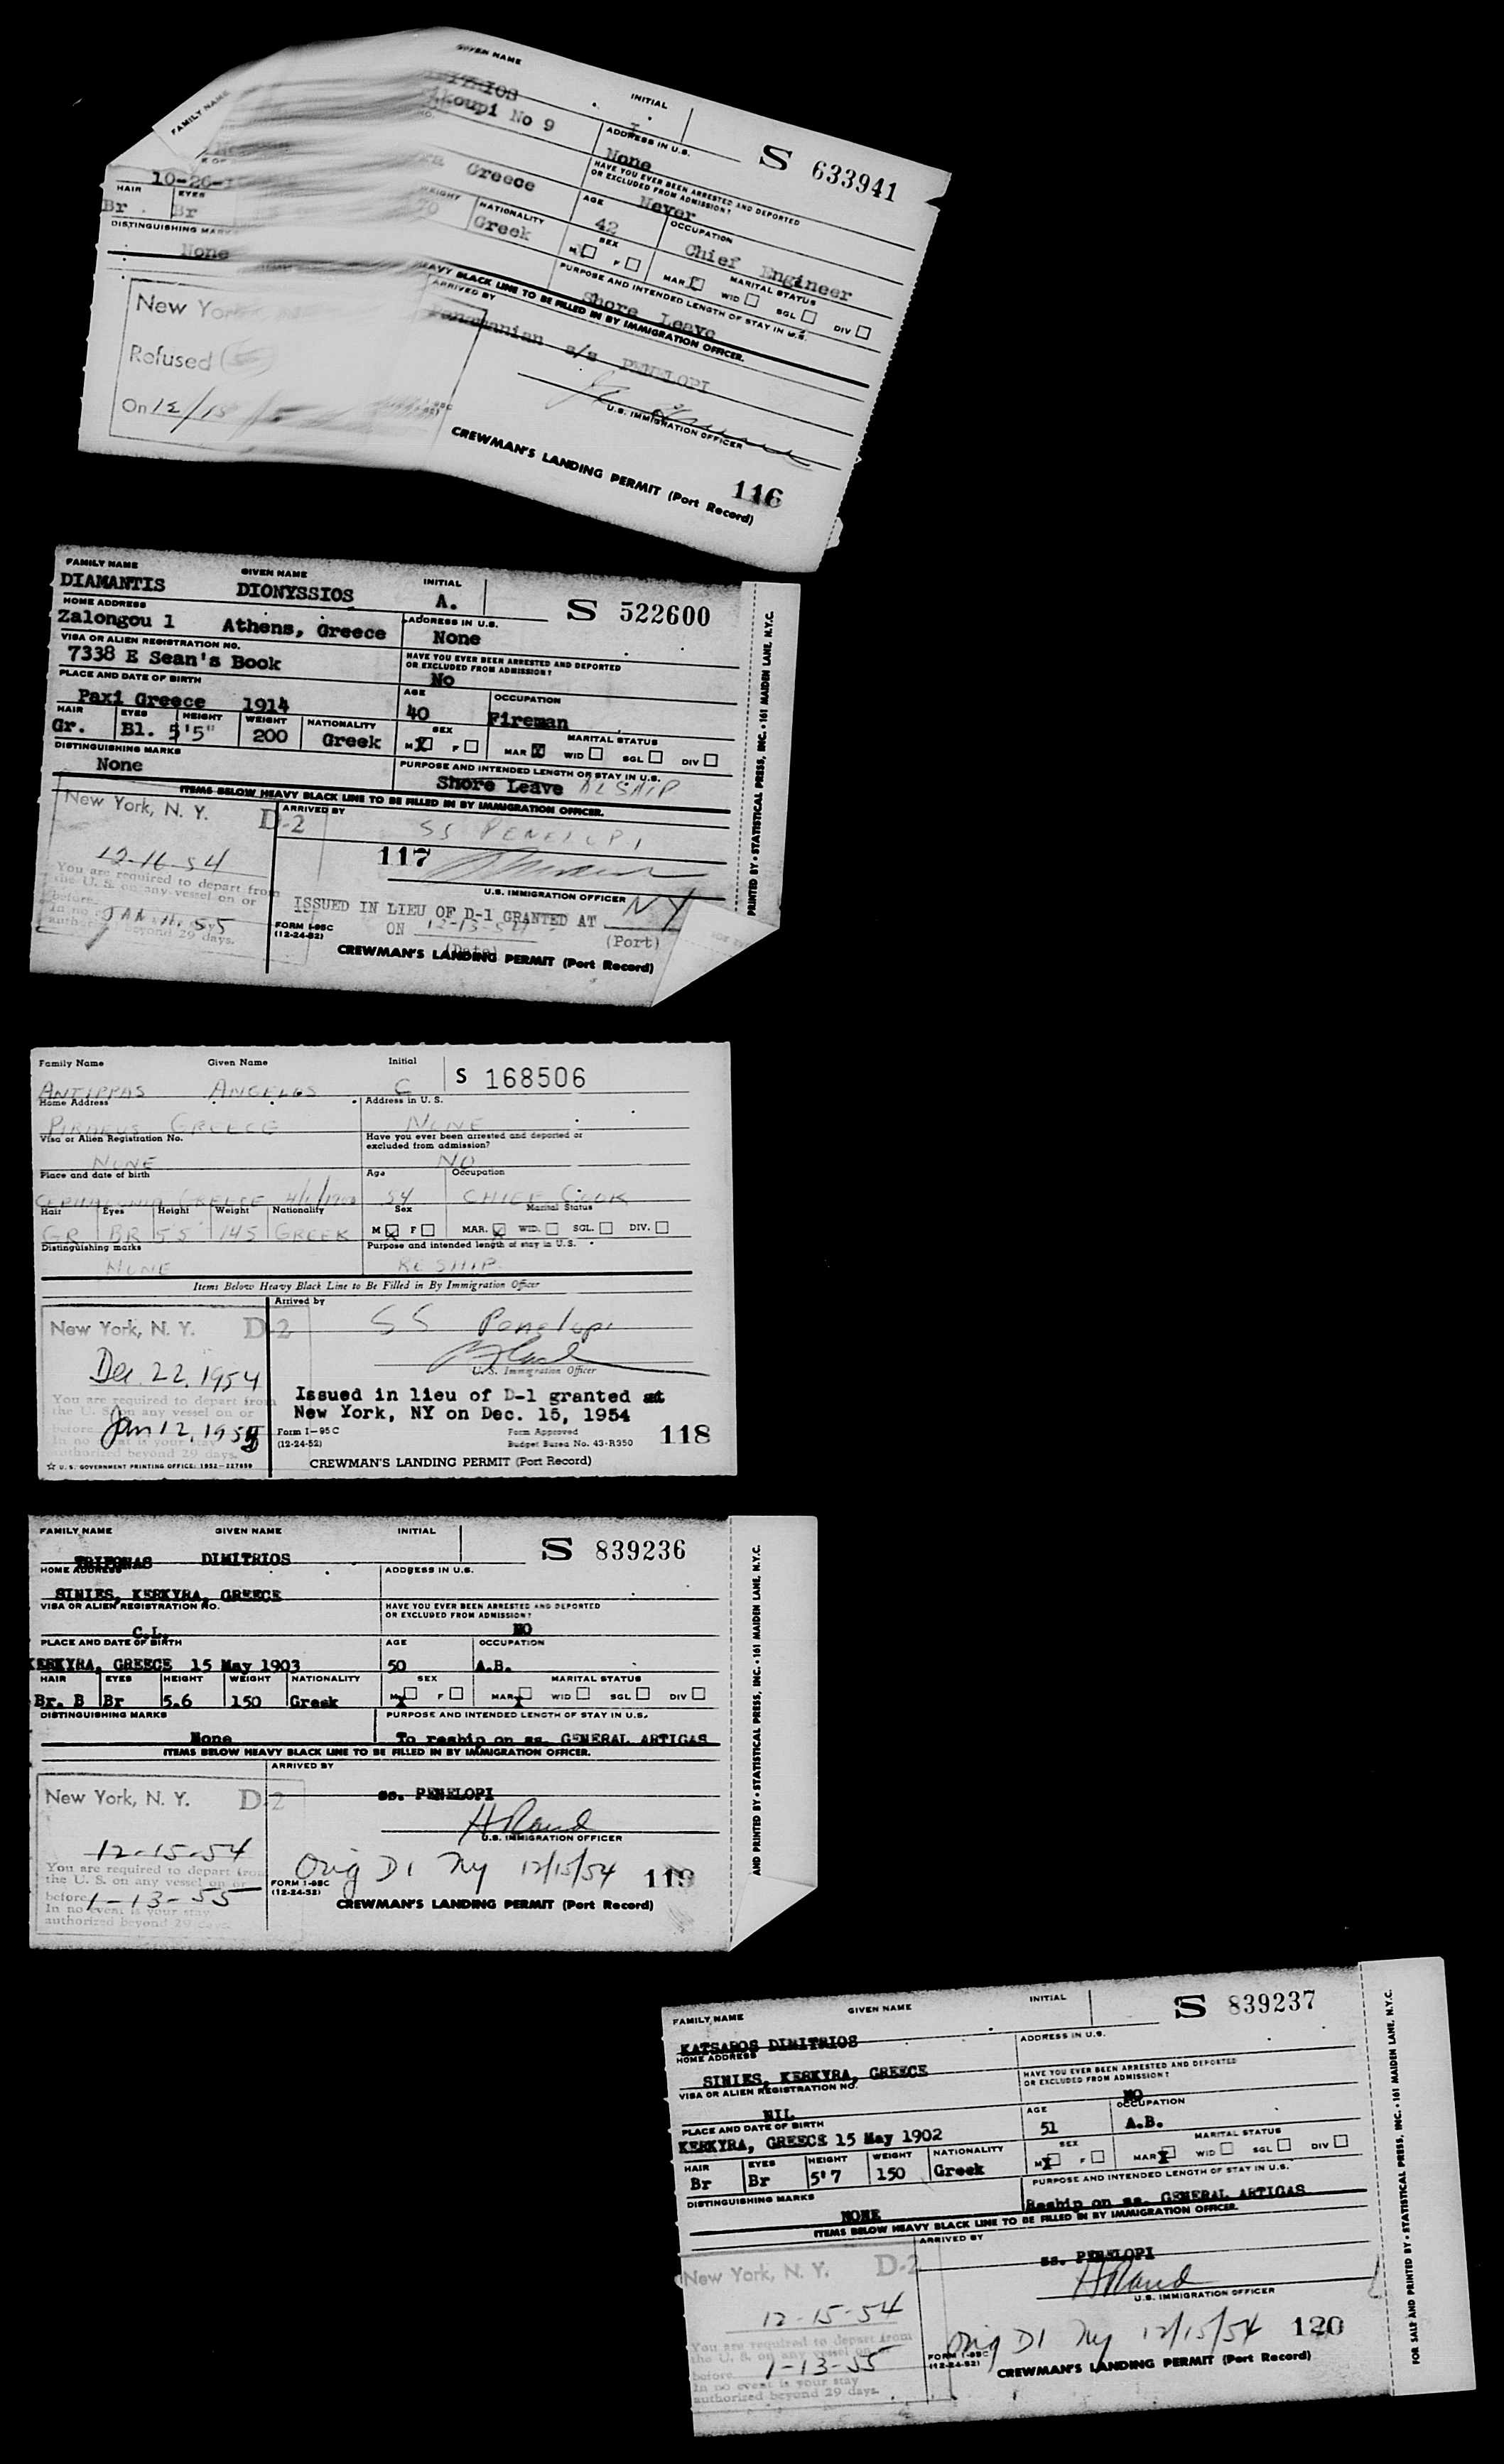 GIVEN NAME
INITIAL
FAMILY NAME
koupi No 9
ADDRESS IN U.S.
S 633941
None
HAVE YOU EVER BEEN ARRESTED AND DEPORTED
OR EXCLUDED FROM ADMISSION?
Never
Greece
10-26-1
AGE
OCCUPATION
42
Chief Engineer
HAIR
EYES
WEIGHT
NATIONALITY
SEX
MARITAL STATUS
Br. Br 70 Greek
M F MAR WID SGL DIV
DISTINGUISHING MARKS
None
PURPOSE AND INTENDED LENGTH OF STAY IN U.S.
Shore Leave
HEAVY BLACK LINE TO BE FILLED IN BY IMMIGRATION OFFICER.
ARRIVED BY
Panamanian s/s PENELOPI
New York
Refused
On 12/15
U.S. IMMIGRATION OFFICER
116
CREWMAN'S LANDING PERMIT (Port Record)
FAMILY NAME GIVEN NAME INITIAL
DIAMANTIS DIONYSSIOS A.
S 522600
HOME ADDRESS ADDRESS IN U.S.
Zalongou 1 Athens, Greece None
VISA OR ALIEN REGISTRATION NO. HAVE YOU EVER BEEN ARRESTED AND DEPORTED
OR EXCLUDED FROM ADMISSION?
7338 E Sean's Book No
PLACE AND DATE OF BIRTH AGE OCCUPATION
Paxi Greece 1914 40 Fireman
HAIR EYES HEIGHT WEIGHT NATIONALITY SEX MARITAL STATUS
Gr. Bl. 5'5" 200 Greek M X F MAR X WID SGL DIV
DISTINGUISHING MARKS PURPOSE AND INTENDED LENGTH OR STAY IN U.S.
None Shore Leave
ITEMS BELOW HEAVY BLACK LINE TO BE FILLED IN BY IMMIGRATION OFFICER.
New York, N. Y. D-2 ARRIVED BY
SS PENELOPI
12-16-54
117
You are required to depart from
the U. S. on any vessel on or
before JAN 14, 55
In no
beyond 29 days.
U.S. IMMIGRATION OFFICER
ISSUED IN LIEU OF D-1 GRANTED AT NY
ON 12-15-54 (Port)
(Date)
FORM I-95C
(12-24-52)
CREWMAN'S LANDING PERMIT (Port Record)
PRINTED BY • STATISTICAL PRESS, INC. • 161 MAIDEN LANE, N.Y.C.
Family Name Given Name Initial
S 168506
ANTIPPAS ANGELOS C
Home Address Address in U. S.
PIRAEUS GREECE NONE
Visa or Alien Registration No. Have you ever been arrested and deported or
excluded from admission?
NONE NO
Place and date of birth Age Occupation
CEPHALONIA GREECE 4/1/1900 54 CHIEF COOK
Hair Eyes Height Weight Nationality Sex Marital Status
GR BR 5'5" 145 GREEK M X F MAR. X WID. SGL. DIV.
Distinguishing marks Purpose and intended length of stay in U.S.
NONE RESHIP
Items Below Heavy Black Line to Be Filled in By Immigration Officer
Arrived by
New York, N. Y. D-2 SS Penelopi
Dec. 22, 1954
U. S. Immigration Officer
You are required to depart from
the U. S. on any vessel on or
before Jan 12, 1955
In no event is your stay
authorized beyond 29 days.
Issued in lieu of D-1 granted at
New York, NY on Dec. 15, 1954
Form I—95C
(12-24-52)
Form Approved
Budget Bureau No. 43-R350
118
☆ U. S. GOVERNMENT PRINTING OFFICE: 1952—227850
CREWMAN'S LANDING PERMIT (Port Record)
FAMILY NAME GIVEN NAME INITIAL
S 839236
TRIFONAS DIMITRIOS
HOME ADDRESS ADDRESS IN U.S.
SINIES, KERKYRA, GREECE
VISA OR ALIEN REGISTRATION NO. HAVE YOU EVER BEEN ARRESTED AND DEPORTED
OR EXCLUDED FROM ADMISSION?
C.L. NO
PLACE AND DATE OF BIRTH AGE OCCUPATION
KERKYRA, GREECE 15 May 1903 50 A.B.
HAIR EYES HEIGHT WEIGHT NATIONALITY SEX MARITAL STATUS
Br. B Br 5.6 150 Greek M X F MAR X WID SGL DIV
DISTINGUISHING MARKS PURPOSE AND INTENDED LENGTH OF STAY IN U.S.
None To reship on ss. GENERAL ARTIGAS
ITEMS BELOW HEAVY BLACK LINE TO BE FILLED IN BY IMMIGRATION OFFICER.
ARRIVED BY
New York, N. Y. D-2 ss. PENELOPI
H Rand
U.S. IMMIGRATION OFFICER
12-15-54
You are required to depart from
the U. S. on any vessel on or
before 1-13-55
In no event is your stay
authorized beyond 29 days.
Orig D1 Ny 12/15/54 119
FORM I-95C
(12-24-52)
CREWMAN'S LANDING PERMIT (Port Record)
AND PRINTED BY • STATISTICAL PRESS, INC. • 161 MAIDEN LANE, N.Y.C.
FAMILY NAME GIVEN NAME INITIAL
S 839237
KATSAROS DIMITRIOS
HOME ADDRESS ADDRESS IN U.S.
SINIES, KERKYRA, GREECE
VISA OR ALIEN REGISTRATION NO. HAVE YOU EVER BEEN ARRESTED AND DEPORTED
OR EXCLUDED FROM ADMISSION?
NIL NO
PLACE AND DATE OF BIRTH AGE OCCUPATION
KERKYRA, GREECE 15 May 1902 51 A.B.
HAIR EYES HEIGHT WEIGHT NATIONALITY SEX MARITAL STATUS
Br Br 5'7 150 Greek M X F MAR X WID SGL DIV
DISTINGUISHING MARKS PURPOSE AND INTENDED LENGTH OF STAY IN U.S.
NONE Reship on ss. GENERAL ARTIGAS
ITEMS BELOW HEAVY BLACK LINE TO BE FILLED IN BY IMMIGRATION OFFICER.
ARRIVED BY
New York, N. Y. D-2 ss. PENELOPI
H Rand
U.S. IMMIGRATION OFFICER
12-15-54
You are required to depart from
the U. S. on any vessel on or
before 1-13-55
In no event is your stay
authorized beyond 29 days.
Orig D1 Ny 12/15/54 120
FORM I-95C
(12-24-52)
CREWMAN'S LANDING PERMIT (Port Record)
FOR SALE AND PRINTED BY • STATISTICAL PRESS, INC. • 161 MAIDEN LANE, N.Y.C.